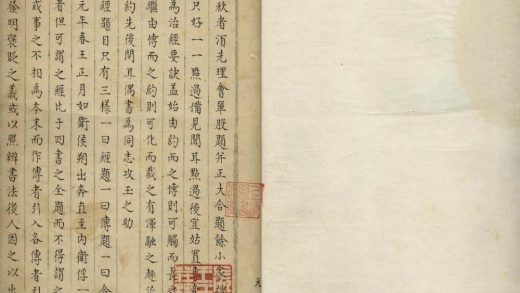 秋者湏先理會單股題并正大合題餘小
只好一一點過備見聞耳點過後宜姑置
為治經要訣蓋始由約而之博則可觸而長
繼由博而之約則可化而裁之有渾融之趣
約先後間耳偶書為同志攻玉之助
經題目只有三樣一曰經題一曰傳題一曰合
元年春王正月如衛侯朔出奔直至內衛俘一
者但可謂之經比于四書之全題而不得謂之
或事之不相為本末而作傳者引入各傳者引
發明褒貶之義或以照辨書法後人因之以出